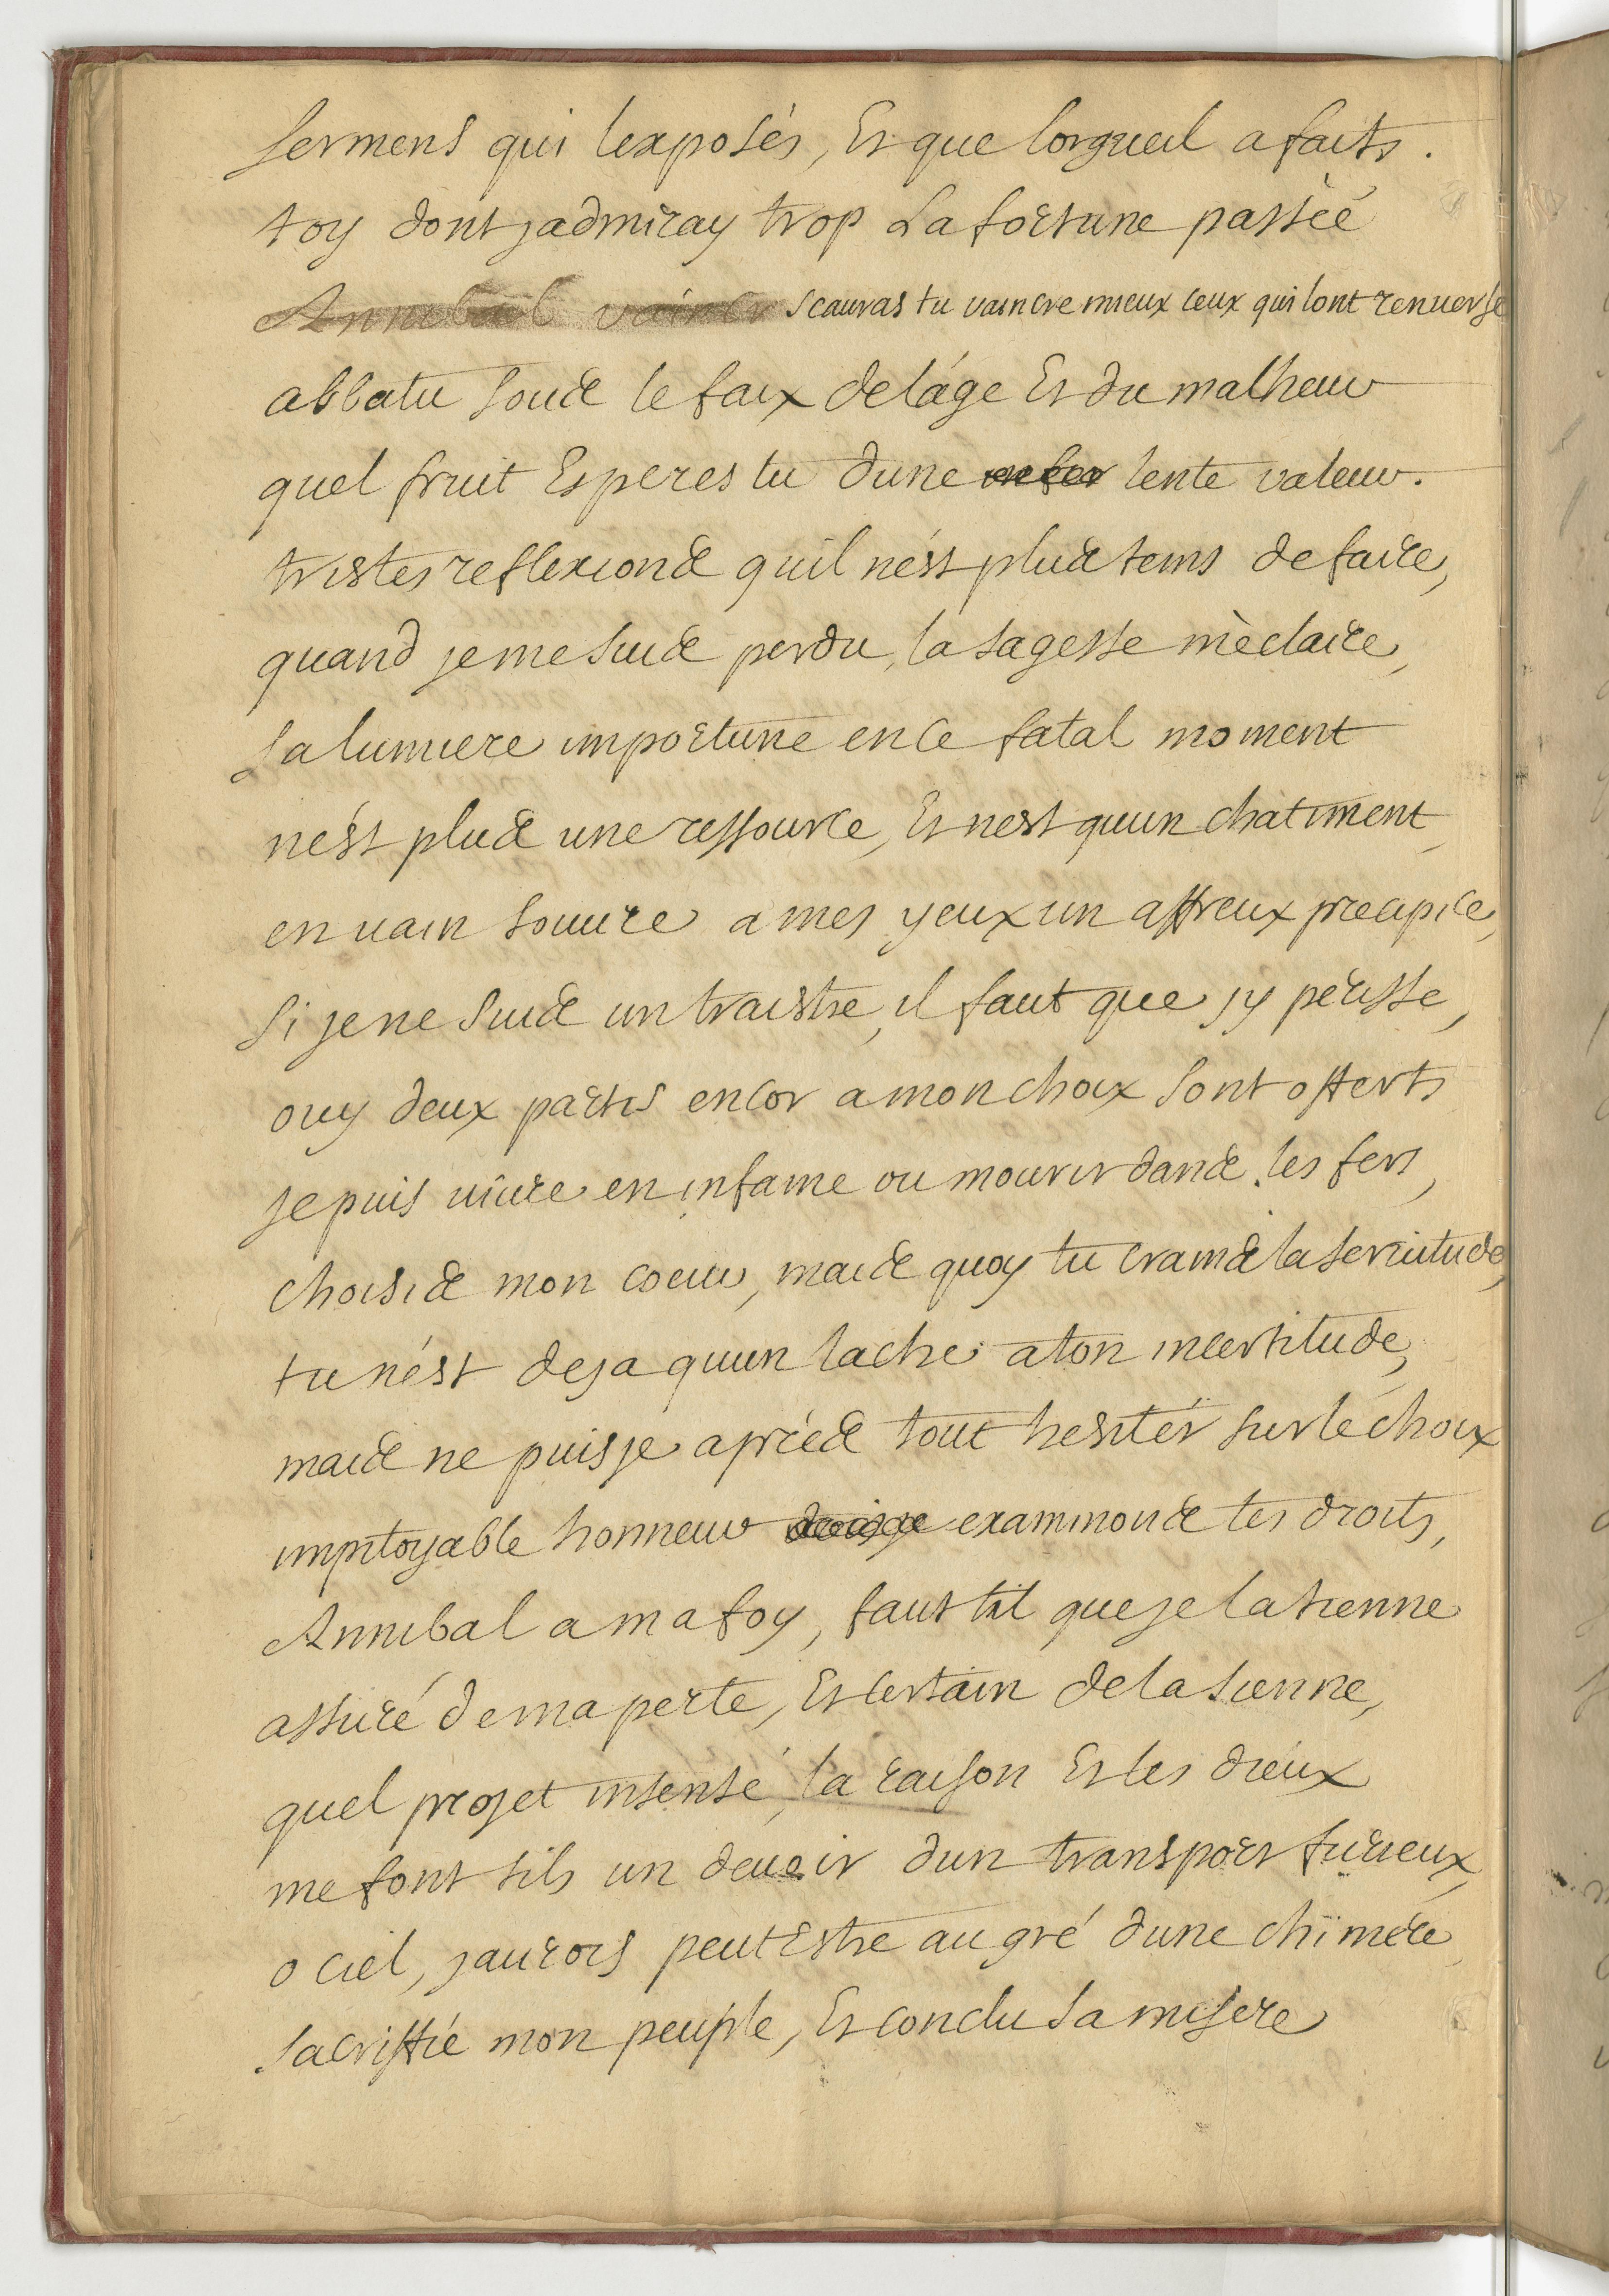 sermens qui lexposés, Et que lorgueil a faits.
toy dont jadmiray trop La fortune passéé
Annibal vaincr scauras tu vaincre mieux ceux qui lont renuersé
abbatu sous le faix de láge Et du malheur
quel fruit Esperes tu dune encor lente valeur.
tristes reflexions quil nést plus tems de faire,
quand je me suis perdu, la sagesse mèclaire,
sa lumiere importune en ce fatal moment
nést plus une ressource, Et nest quun chatiment,
en uain souure a mes yeux un affreux precipice,
si je ne suis un traistre, il faut que jy perisse,
ouy deux partis encor a mon choix sont offerts
je puis uiure en infame ou mourir dans les fers,
choisis mon coeur, mais quoy tu crains la seruitude,
tu nést deja quun lache a ton incertitude,
mais ne puis je aprés tout hesiter sur le choix
impitoyable honneur examinons tes droits,
Annibal a ma foy, faut til que je la tienne
assuré de ma perte, Et certain de la sienne,
quel projet insensé, la raison Et les dieux
me font tils un deuoir dun transport furieux,
o ciel, jaurois peut Estre au gré dune chimére
sacriffié mon peuple, Et conclu sa misere